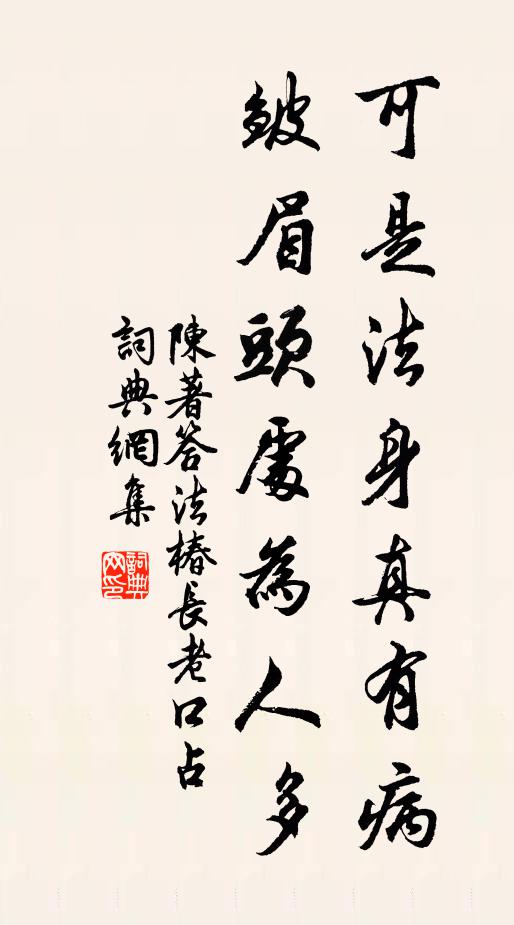 可是法身真有病
皺眉頭處為人多
陳著答法椿長老口占
詞典網集
詞典
網印